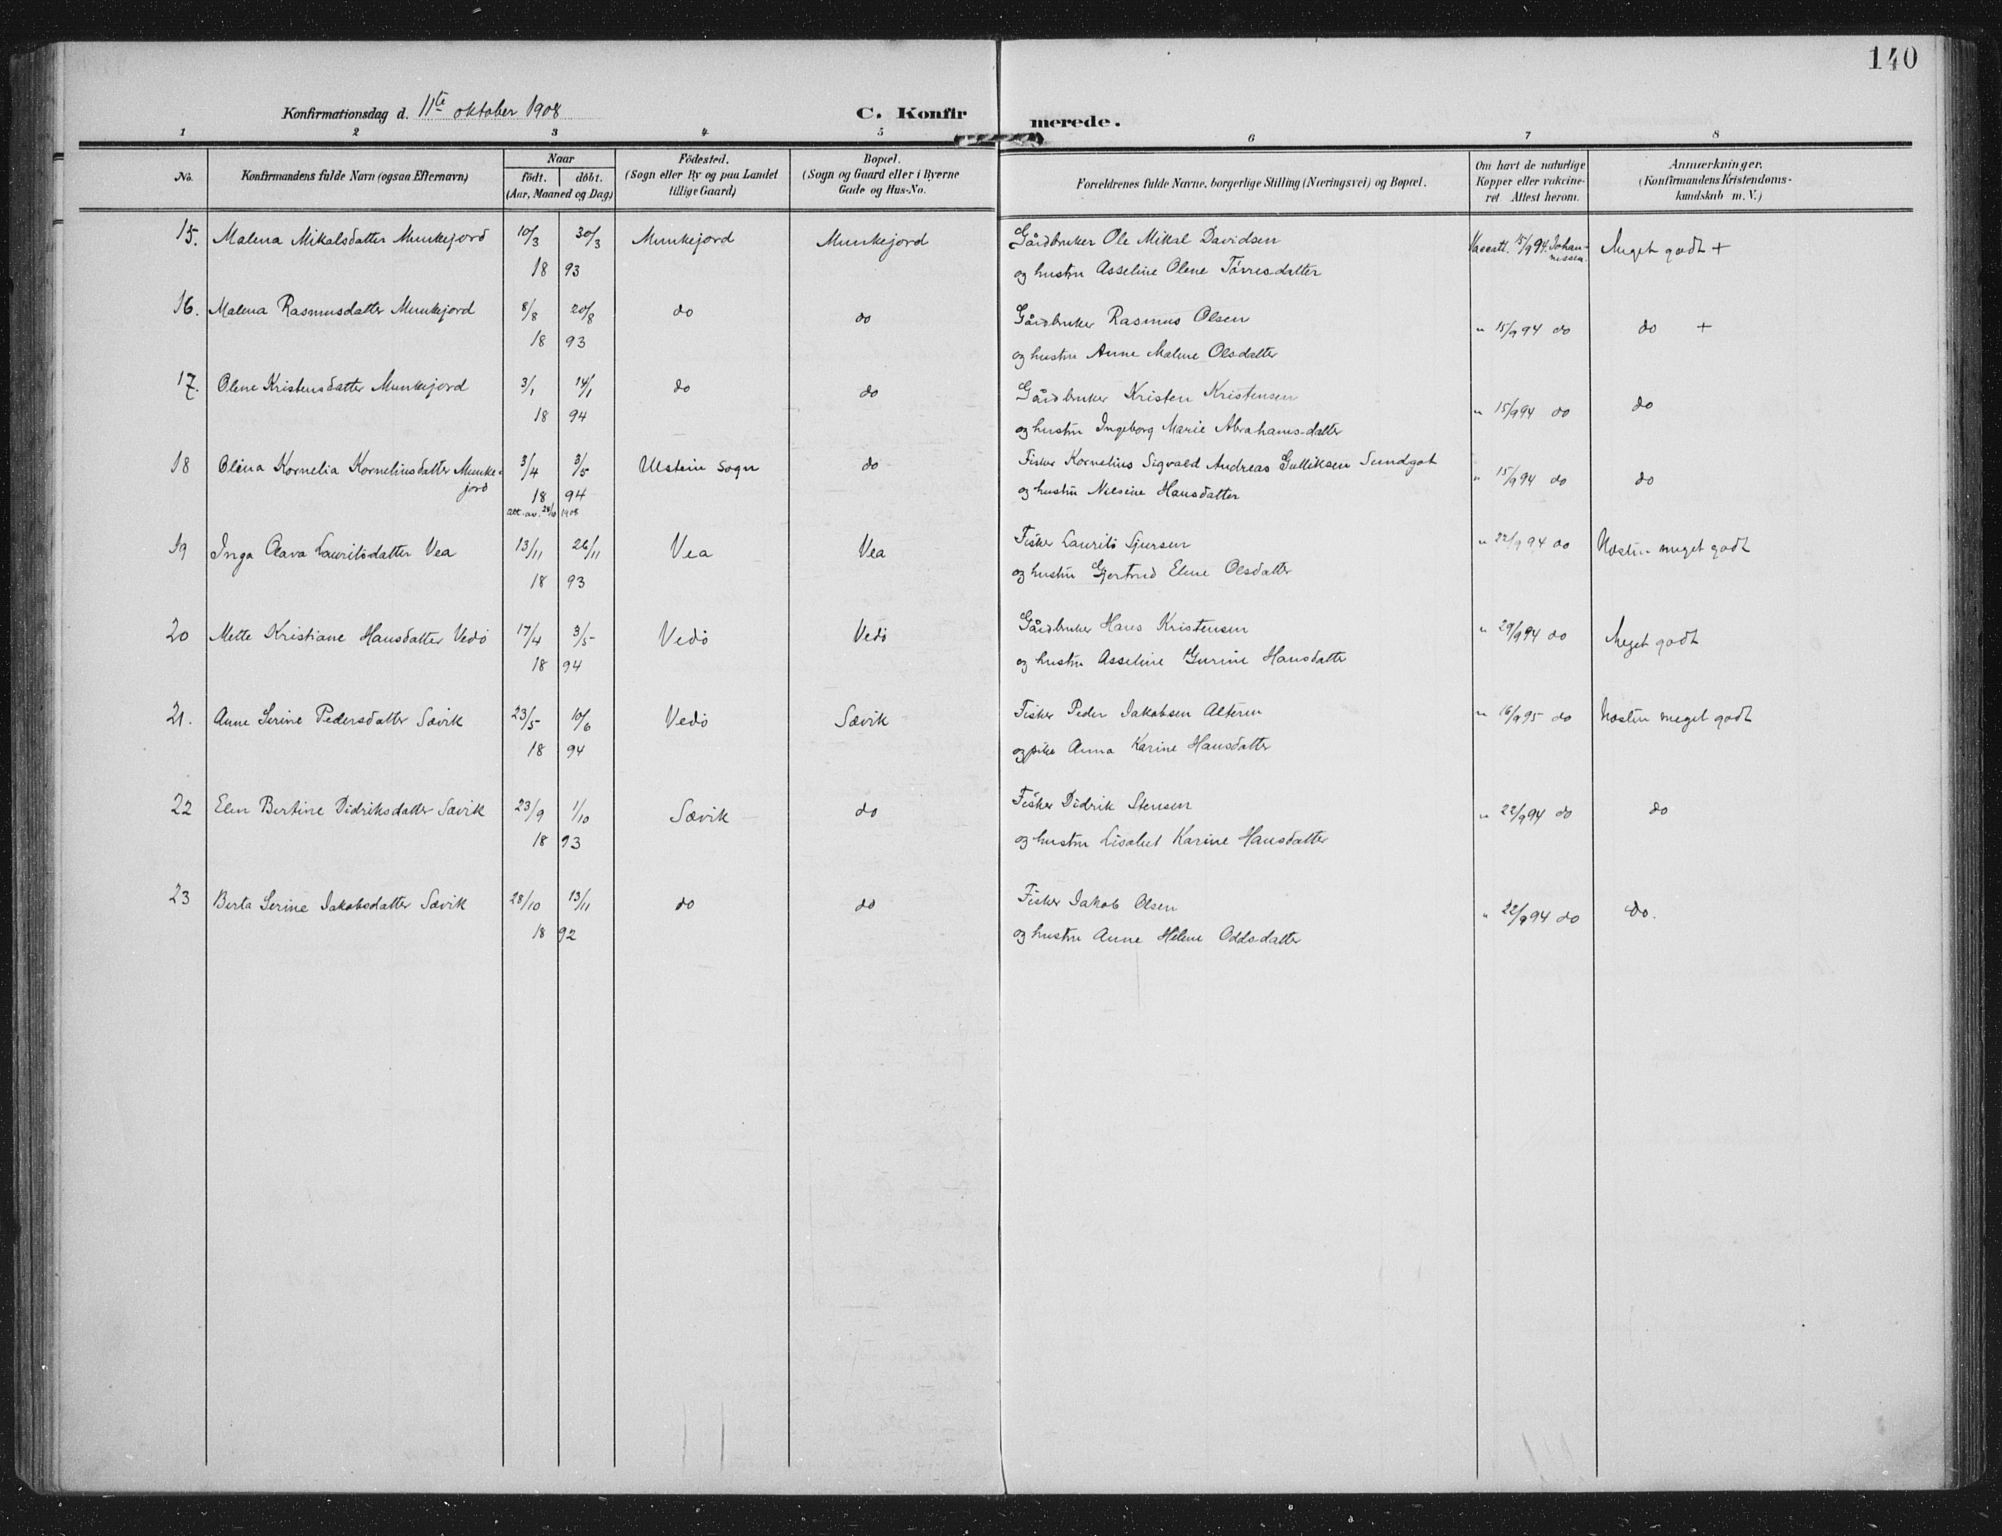 140
Konfirmationsdag d. 11te oktober 1908
C. Konfirmerede.
1 2 3 4 5 6 7 8
No. Konfirmandens fulde Navn (ogsaa Efternavn) Naar født. døbt. (Aar, Maaned og Dag) Fødested. (Sogn eller By og paa Landet tillige Gaard) Bopæl. (Sogn og Gaard eller i Byerne Gade og Hus-No. Forældrenes fulde Navne, borgerlige Stilling (Næringsvei) og Bopæl. Om havt de naturlige Kopper eller vakcineret Attest herom. Anmærkninger. (Konfirmandens Kristendomskundskab m. V.)
15. Malena Mikalsdatter Munkejord 10/3 30/3 Munkejord Munkejord Gårdbruker Ole Mikal Davidsen Vaccatt. 15/9 94. Johannissen. Meget godt +
18 93 og hustru Asseline Olene Tørresdatter
16. Malena Rasmusdatter Munkejord 8/8 20/8 do do Gårdbruker Rasmus Olsen " 15/9 94 do do +
18 93 og hustru Anne Malene Olsdatter
17. Olene Kristensdatter Munkejord 3/1 14/1 do do Gårdbruker Kristen Kristensen " 15/9 94 do do
18 94 og hustru Ingeborg Marie Abrahamsdatter
18 Olena Kornelia Korneliusdatter Munkejord 3/4 3/5 Utstein Sogn do Fisker Kornelius Sigvald Andreas Gulliksen Sundgot " 15/9 94 do do
18 94 og hustru Nilsine Hansdatter
att. av. 28/10 1908
19 Inga Olava Lauritsdatter Vea 13/11 26/11 Vea Vea Fisker Laurits Sjursen " 22/9 94 do Næsten meget godt
18 93 og hustru Gjertrud Elene Olsdatter
20 Mette Kristiane Hansdatter Vedø 17/4 3/5 Vedø Vedø Gårdbruker Hans Kristensen " 29/9 94 do Meget godt
18 94 og hustru Asseline Gurine Hansdatter
21. Anne Serine Pedersdatter Sævik 23/5 10/6 Vedø Sævik Fisker Peder Jakobsen Alteren " 16/9 95 do Næsten meget godt
18 94 og pike Anna Karine Hansdatter
22 Elen Bertine Didriksdatter Sævik 23/9 1/10 Sævik do Fisker Didrik Stensen " 22/9 94 do do
18 93 og hustru Lisabet Karine Hansdatter
23 Berta Serine Jakobsdatter Sævik 28/10 13/11 do do Fisker Jakob Olsen " 22/9 94 do do.
18 92 og hustru Anne Helene Oddsdatter